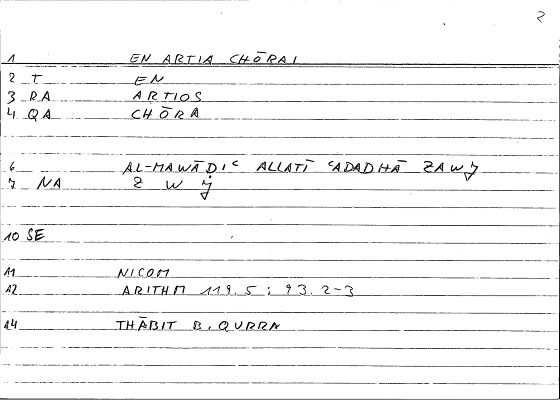 2
1 EN ARTIA CHŌRAI
2 T EN
3 RA ARTIOS
4 QA CHŌRA
6 AL-MAWĀDIᶜ ALLATĪ ᶜADADHĀ ZAWǦ
7 NA Z W Ǧ
10 SE
11 NICOM
12 ARITHM 119.5; 93.2-3
14 THĀBIT B. QURRA